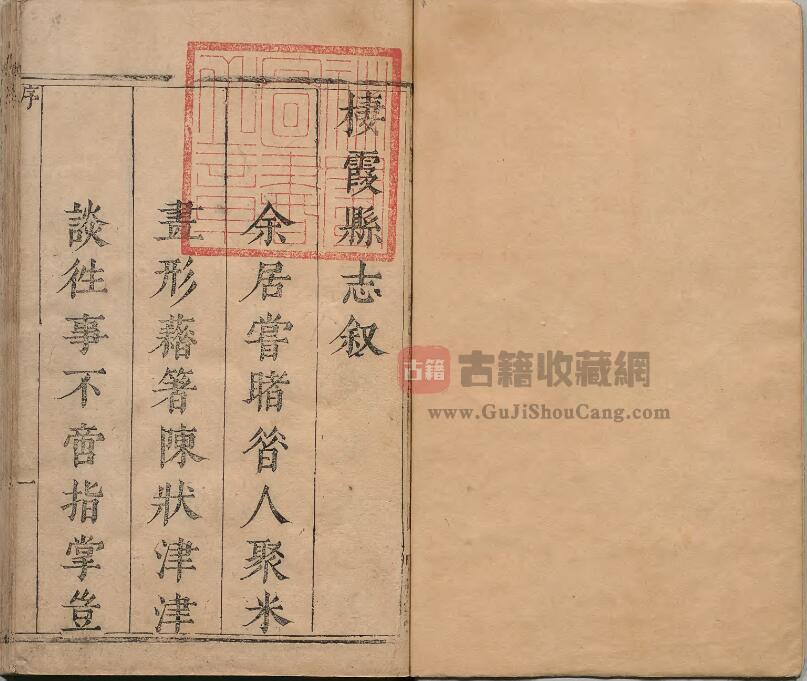 棲霞縣志叙
余居嘗睹㫺人聚米
畫形藉箸陳狀津津
談徃事不啻指掌豈
序 一
古籍
古籍收藏網
www.GuJiShouCang.com